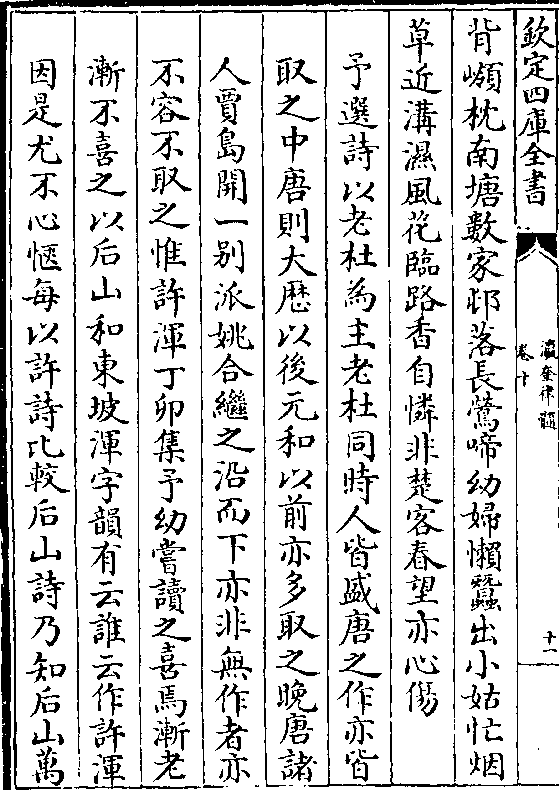 欽定四庫全書
瀛奎律髓
卷十
十一
背嶺枕南塘數家邨落長鶯啼幼婦懶蠶出小姑忙烟
草近溝濕風花臨路香自憐非楚客春望亦心傷
予選詩以老杜為主老杜同時人皆盛唐之作亦皆
取之中唐則大厯以後元和以前亦多取之晚唐諸
人賈島開一别派姚合繼之沿而下亦非無作者亦
不容不取之惟許渾丁卯集予幼嘗讀之喜焉漸老
漸不喜之以后山和東坡渾字韻有云誰云作許渾
因是尤不心愜每以許詩比較后山詩乃知后山萬